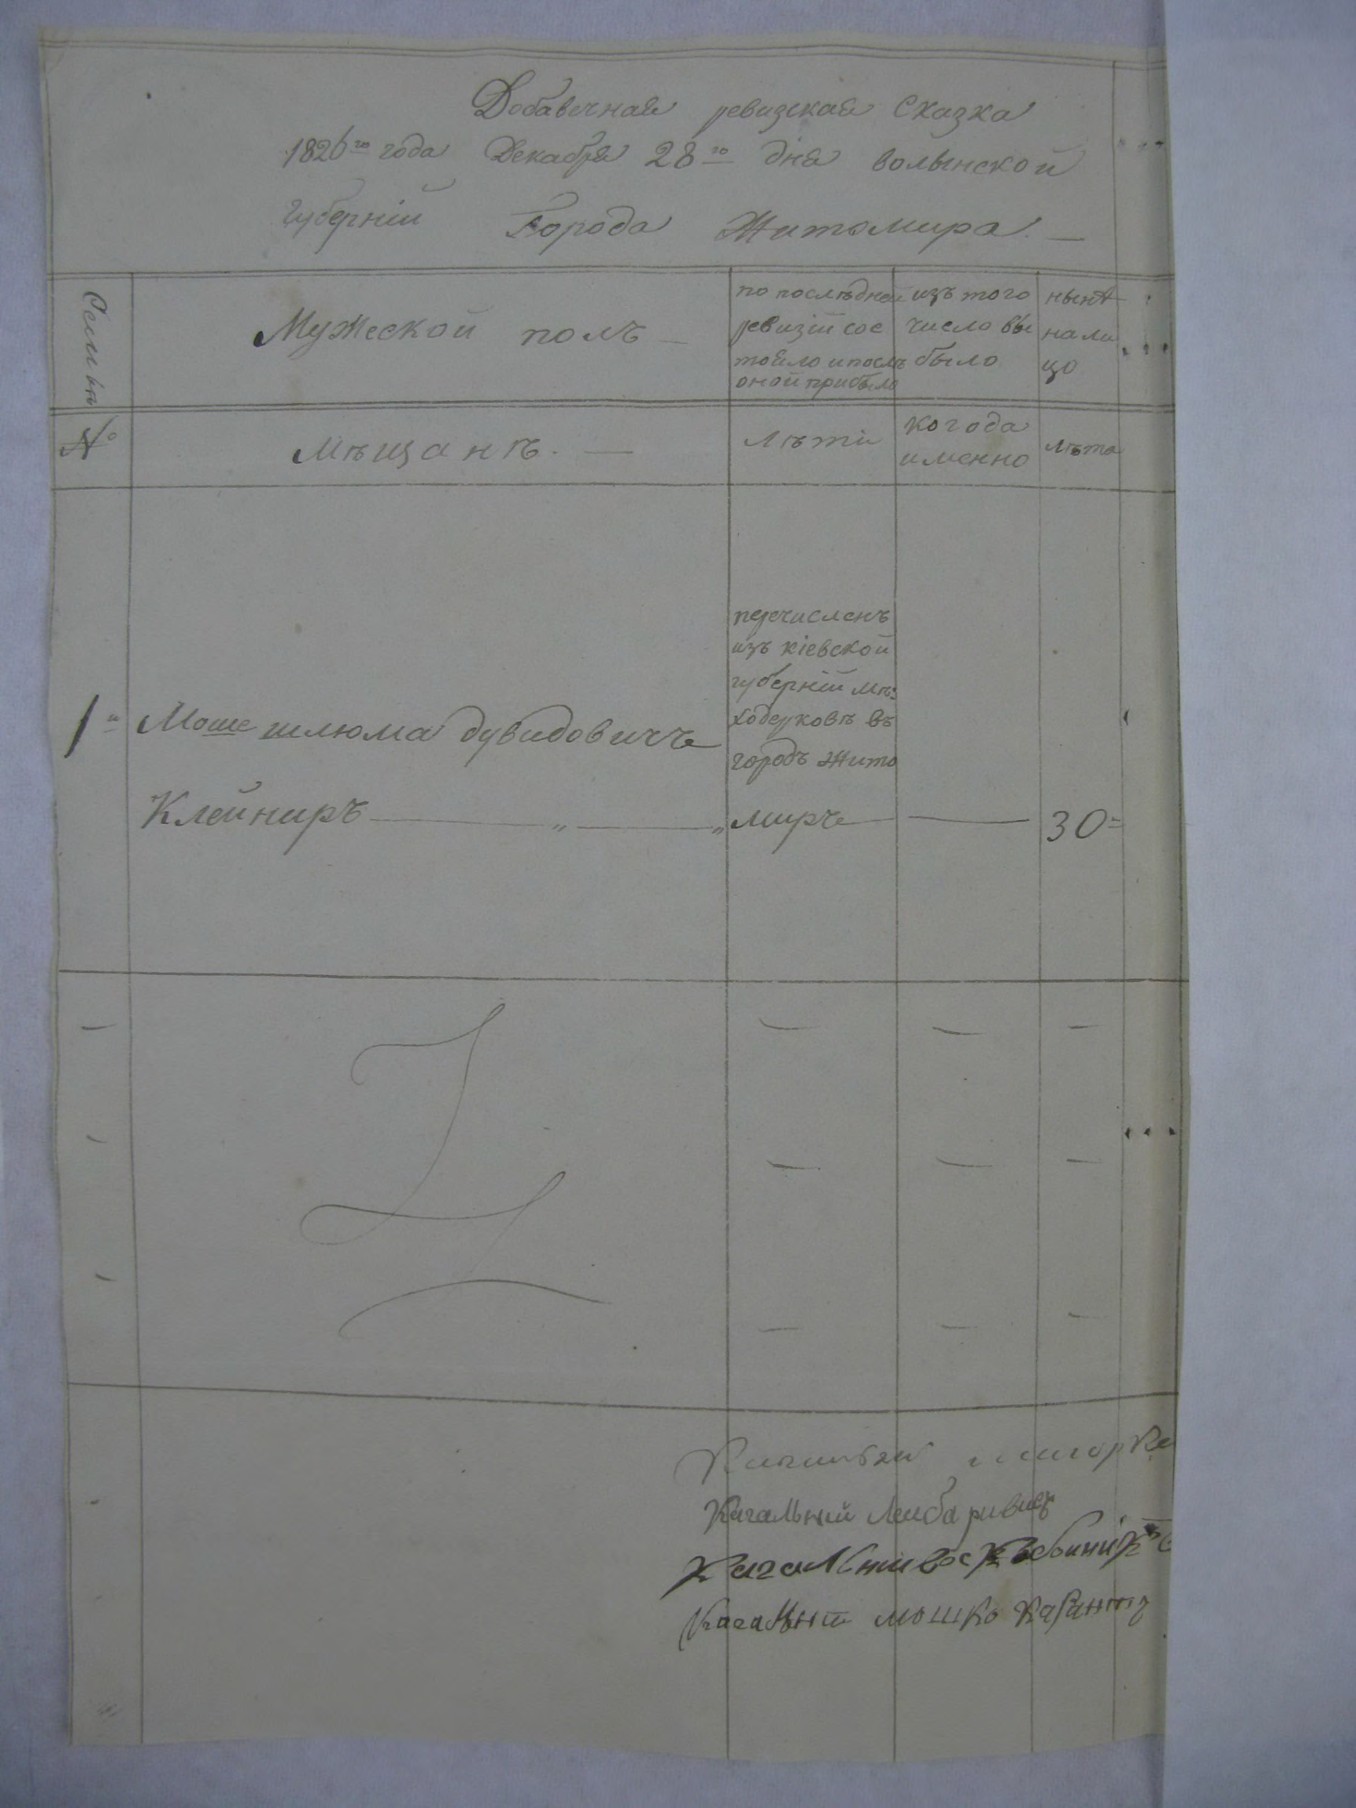 Добавочная ревизская Сказка
1826го года Декабря 28го дня волынской
губерніи Города Житомира.
Семьѣ
Мужеской полъ
по послѣдней
ревизіи сос
тояло и послѣ
оной прибыло
изъ того
число вы
было
нынѣ
на ли
цо
№
мѣщанѣ.
лѣти
когода
именно
лѣта
1
Моше шлюма дувидовичь
Клейниръ
перечисленъ
изъ кіевской
губерніи мѣ:
ходерковѣ въ
городъ Жито
миръ
30
Кагальный Лейба
Кагальни
Кагальный мошко